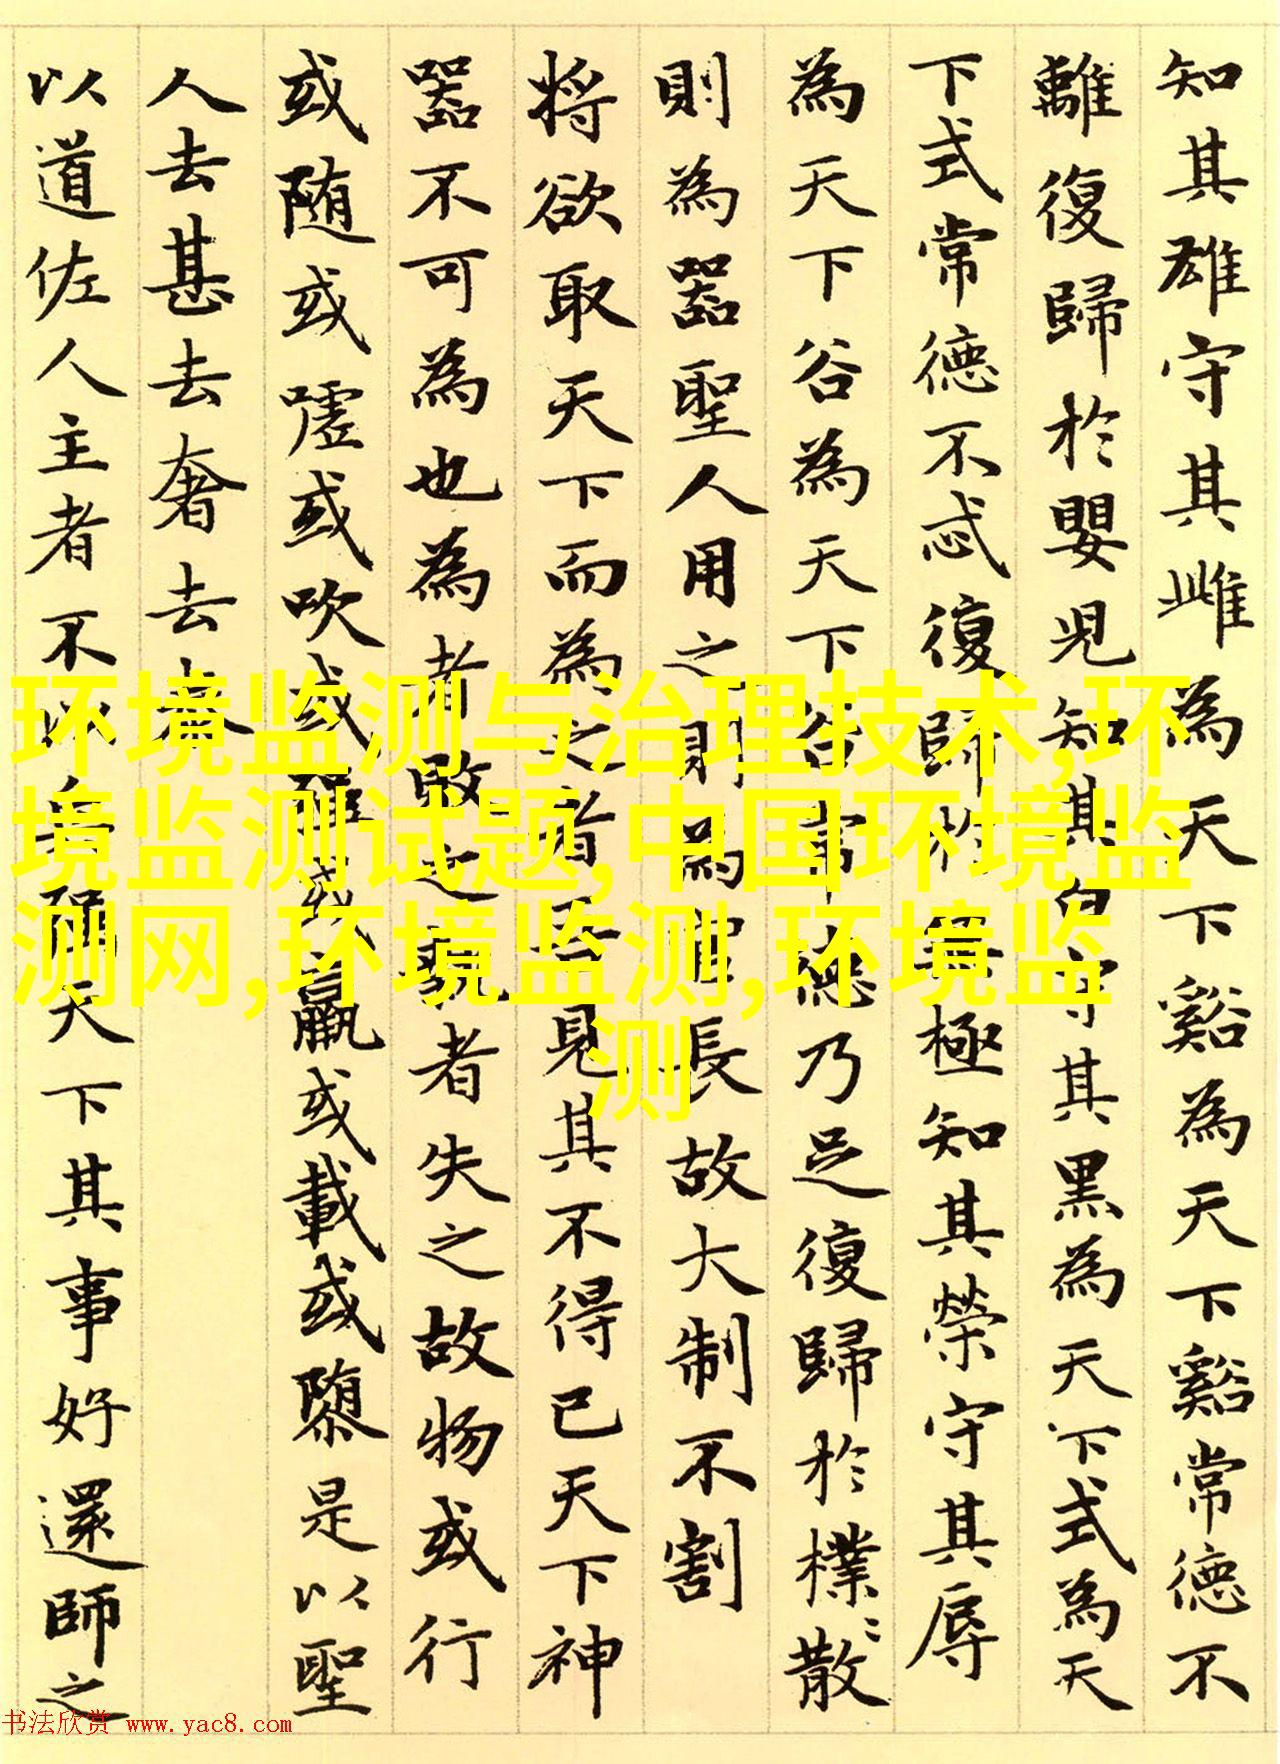 知其雄守其雌為天下谿為天下谿常德不
離復歸於嬰兒知其白守其黑為天下式為天
下式常德不忒復歸於無極知其榮守其辱
為天下谷為天下谷常德乃足復歸於樸〻散
則為器聖人用之則為官長故大制不割
将欲取天下而為之者吾見其不得已天下神
器不可為也為者敗之執者失之故物或行
或随或嘘或吹或強或羸或載或隳是以聖
人去甚去奢去泰
以道佐人主者不以兵強天下其事好還師之
环境监测与治理技术,环
境监测试题,中国环境监
测网,环境监测,环境监
测
书法欣赏 www.yac8.com